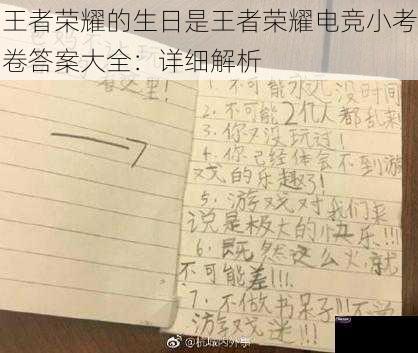 王者荣耀的生日是王者荣耀电竞小考
卷答案大全：详细解析
看这里！
1、不可能永远没时间
2、不可能2亿人都乱来
3、你又没玩过！
4、你已经体会不到游
戏的乐趣了！
5、游戏对我们来
说是极大的快乐!!!
6、既然这么火,就
不可能差!!!
7、不做书呆子!!不说
游戏迷!!!
@杭城内外事